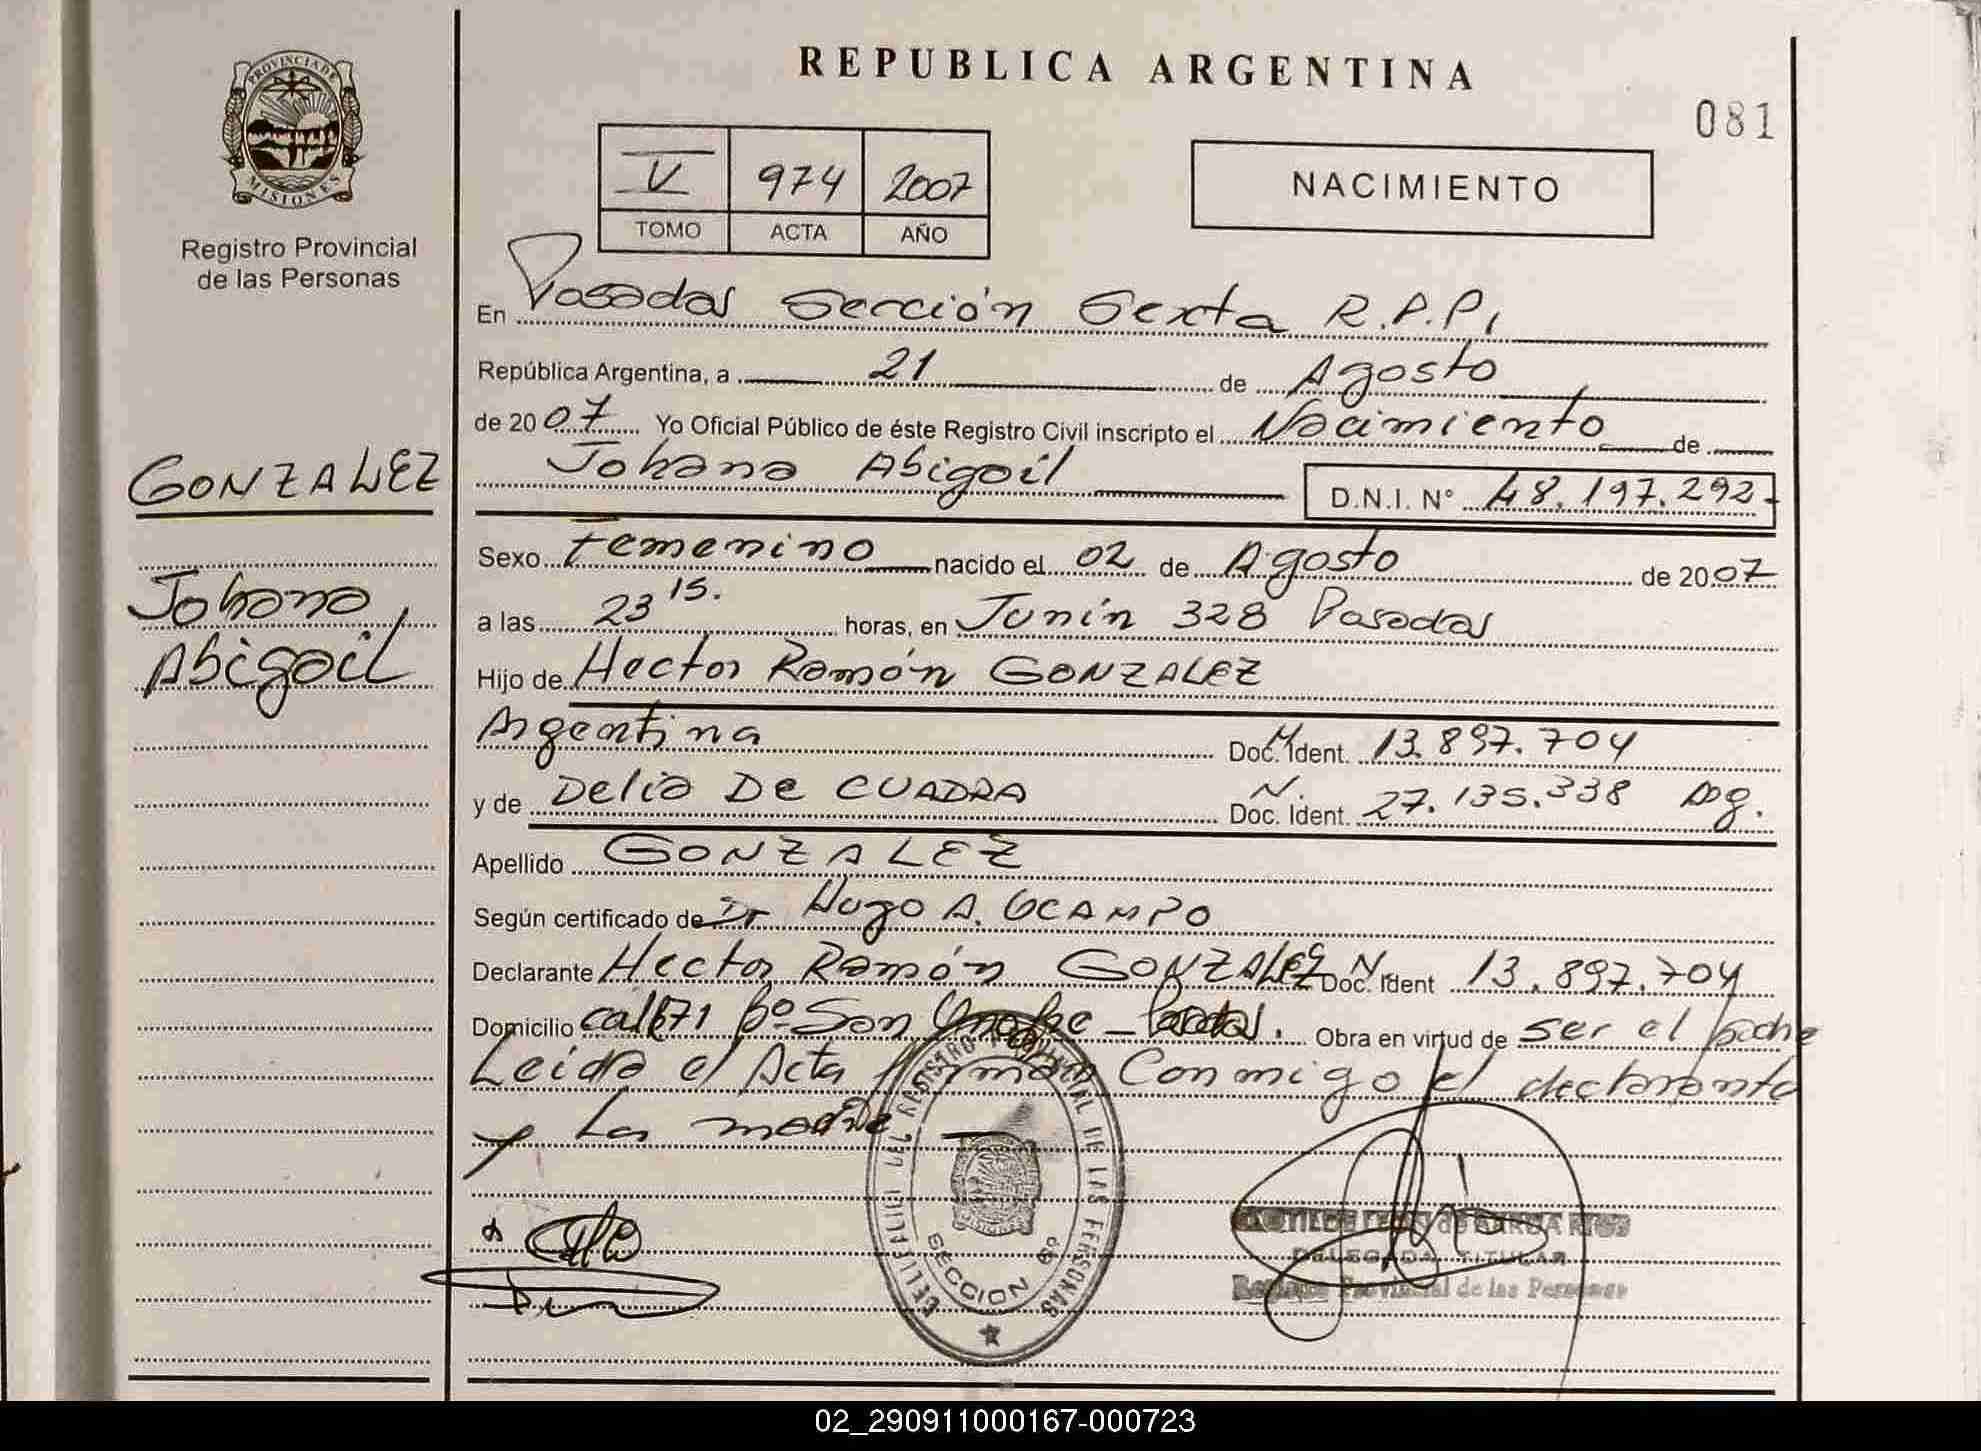 REPUBLICA ARGENTINA
081
PROVINCIA DE
MISIONES
Registro Provincial
de las Personas
V 974 2007
TOMO ACTA AÑO
NACIMIENTO
En Posadas Sección Sexta R.P.P.
República Argentina, a 21 de Agosto
de 2007 Yo Oficial Público de éste Registro Civil inscripto el Nacimiento de
GONZALEZ
Johana Abigail
D.N.I. N° 48.197.292.-
Sexo Femenino nacido el 02 de Agosto de 2007
Johana
Abigail
a las 23 15. horas, en Junín 328 Posadas
Hijo de Hector Ramón GONZALEZ
Argentina Doc. Ident. 13.897.704
y de Delia De CUADRA Doc. Ident. 27.135.338 Arg.
Apellido GONZALEZ
Según certificado de Dr Hugo A. OCAMPO
Declarante Hector Ramón GONZALEZ Doc. N. Ident 13.897.704
Domicilio Bº San Posadas. Obra en virtud de ser el padre
Leida el Acta firman Conmigo el declarante
y La madre
REGISTRO PROVINCIAL DE LAS PERSONAS
SECCION 6º
DELEGADA TITULAR
Registro Provincial de las Personas
02_290911000167-000723